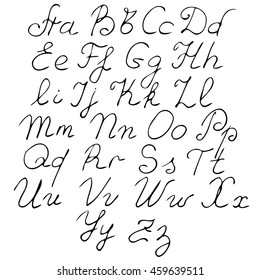 Aa Bb Cc Dd
Ee Ff Gg Hh
Ii Jj Kk Ll
Mm Nn Oo Pp
Qq Rr Ss Tt
Uu Vv Ww Xx
Yy Zz
shutterstock.com · 459639511